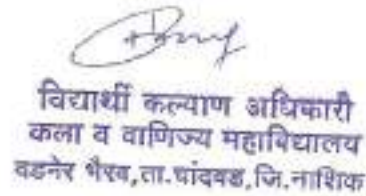 विद्यार्थी कल्याण अधिकारी
कला व वाणिज्य महाविद्यालय
वडनेर भैरव,ता.चांदवड,जि.नाशिक